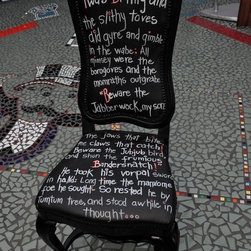 'Twas Brillig and
the slithy toves
did gyre and gimble
in the wabe: All
mimsey were the
borogoves and the
momraths outgrabe
"Beware the
Jabberwock, my son
The jaws that bite,
the claws that catch!
Beware the Jubjub bird,
and shun the frumious
Bandersnatch!
He took his vorpal sword
in hand: Long time the manxome
foe he sought- So rested he by
Tumtum tree, and stood awhile in
thought...